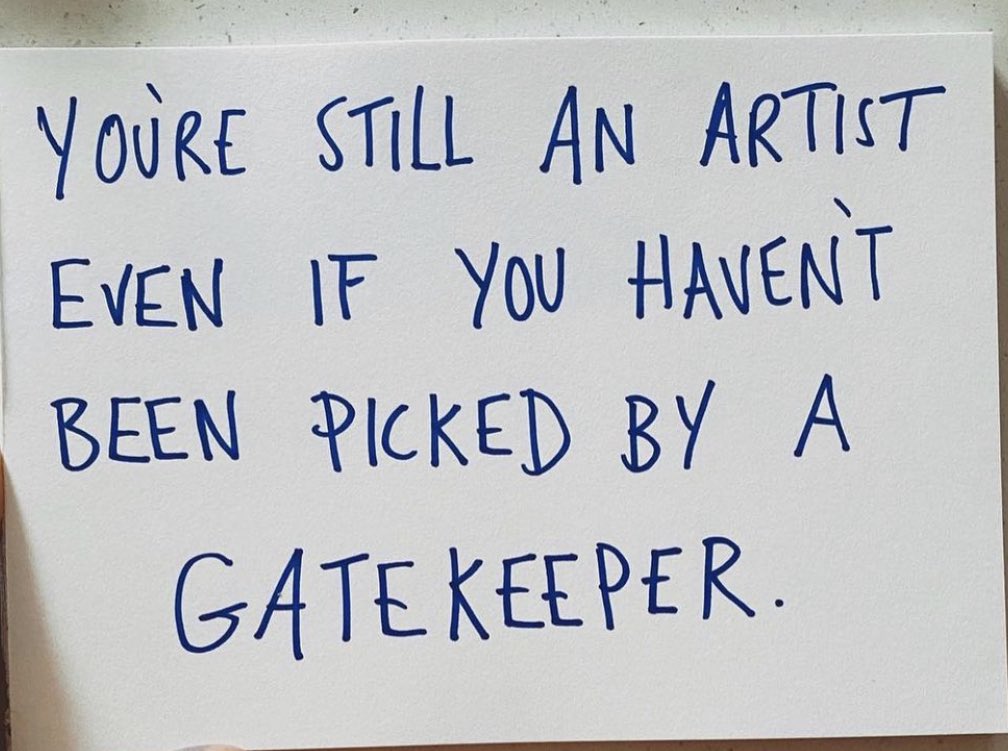 YOU'RE STILL AN ARTIST
EVEN IF YOU HAVEN'T
BEEN PICKED BY A
GATEKEEPER.